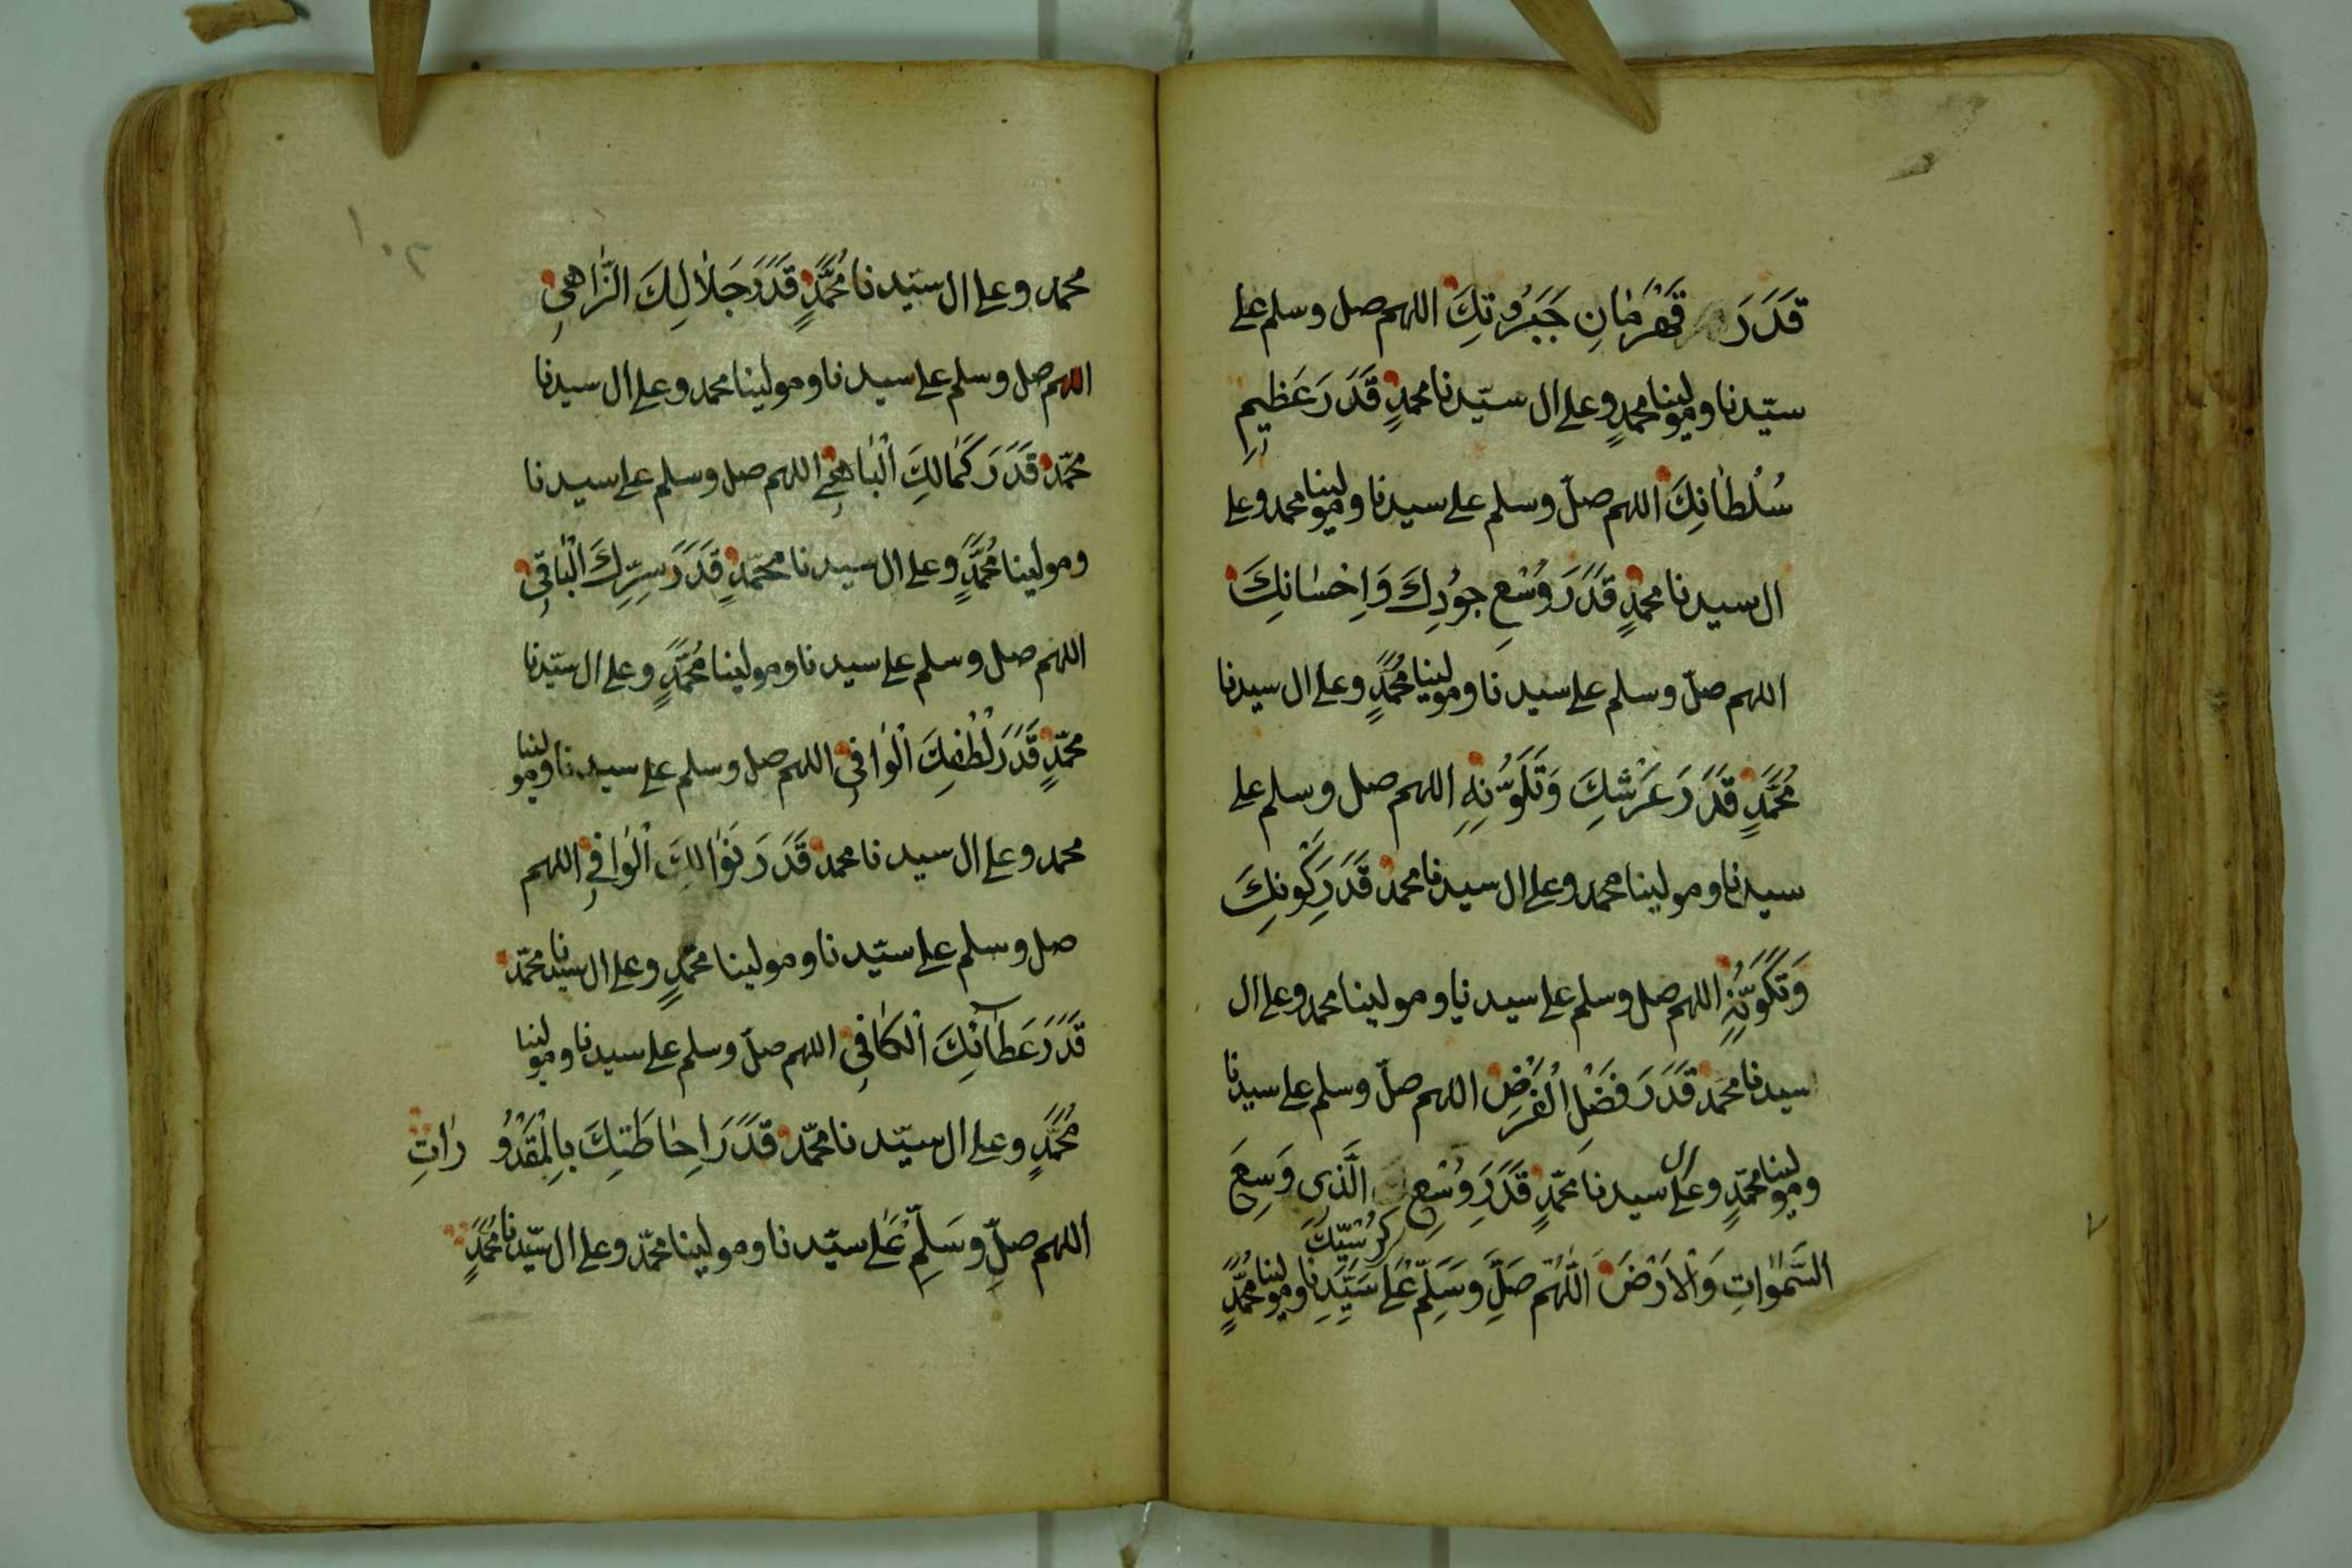 قَدَرَ قَهْرَمَانِ جَبَرُوتِكَ اللهم صل وسلم على
سيّدنا ومولينا محمدٍ وعلى ال سيّدنا محمدٍ قَدَرَ عَظِيمِ
سُلْطَانِكَ اللهم صلّ وسلم على سيدنا ومولينا محمد وعلى
ال سيدنا محمدٍ قَدَرَ وُسْعِ جُودِكَ وَاِحْسَانِكَ
اللهم صلّ وسلم على سيدنا ومولينا مُحَمَّدٍ وعلى ال سيدنا
مُحَمَّدٍ قَدَرَ عَرْشِكَ وَتَكَوُّنِهِ اللهم صل وسلم على
سيدنا ومولينا محمد وعلى ال سيدنا محمد قَدَرَ كَوْنِكَ
وَتَكَوُّنِهِ اللهم صل وسلم على سيدنا ومولينا محمد وعلى ال
سيدنا محمد قَدَرَ فَضْلِ الْفَرْضِ اللهم صلّ وسلم على سيدنا
ومولينا محمّدٍ وعلى ال سيدنا محمّدٍ قَدَرَ وُسْعِ كُرْسِيِّكَ الَّذِى وَسِعَ
السَّمٰوَاتِ وَالْاَرْضَ اَللّٰهُمَّ صَلِّ وَسَلِّمْ عَلٰى سَيِّدِنَا ومولينا مُحَمَّدٍ
محمد وعلى ال سيّدنا مُحَمَّدٍ قَدَرَ جَلَالِكَ الزَّاهِى
اللهم صل وسلم على سيدنا ومولينا محمد وعلى ال سيدنا
محمّد قَدَرَ كَمَالِكَ الْبَاهِى اللهم صل وسلم على سيدنا
ومولينا مُحَمَّدٍ وعلى ال سيدنا محمّدٍ قَدَرَ سِرِّكَ الْبَاقِى
اللهم صل وسلم على سيدنا ومولينا مُحَمَّدٍ وعلى ال سيّدنا
محمّدٍ قَدَرَ لُطْفِكَ الْوَافِى اللهم صل وسلم على سيدنا ومولينا
محمد وعلى ال سيدنا محمد قَدَرَ نَوَالِكَ الْوَافِى اللهم
صل وسلم على سيّدنا ومولينا محمّدٍ وعلى ال سيدنا محمّد
قَدَرَ عَطَآئِكَ الْكَافِى اللهم صلّ وسلم على سيدنا ومولينا
مُحَمَّدٍ وعلى ال سيّدنا محمّد قَدَرَ اِحَاطَتِكَ بِالْمَقْدُورَاتِ
اللهم صلِّ وَسَلِّمْ عَلٰى سيّدنا ومولينا محمّد وعلى ال سيّدنا مُحَمَّدٍ